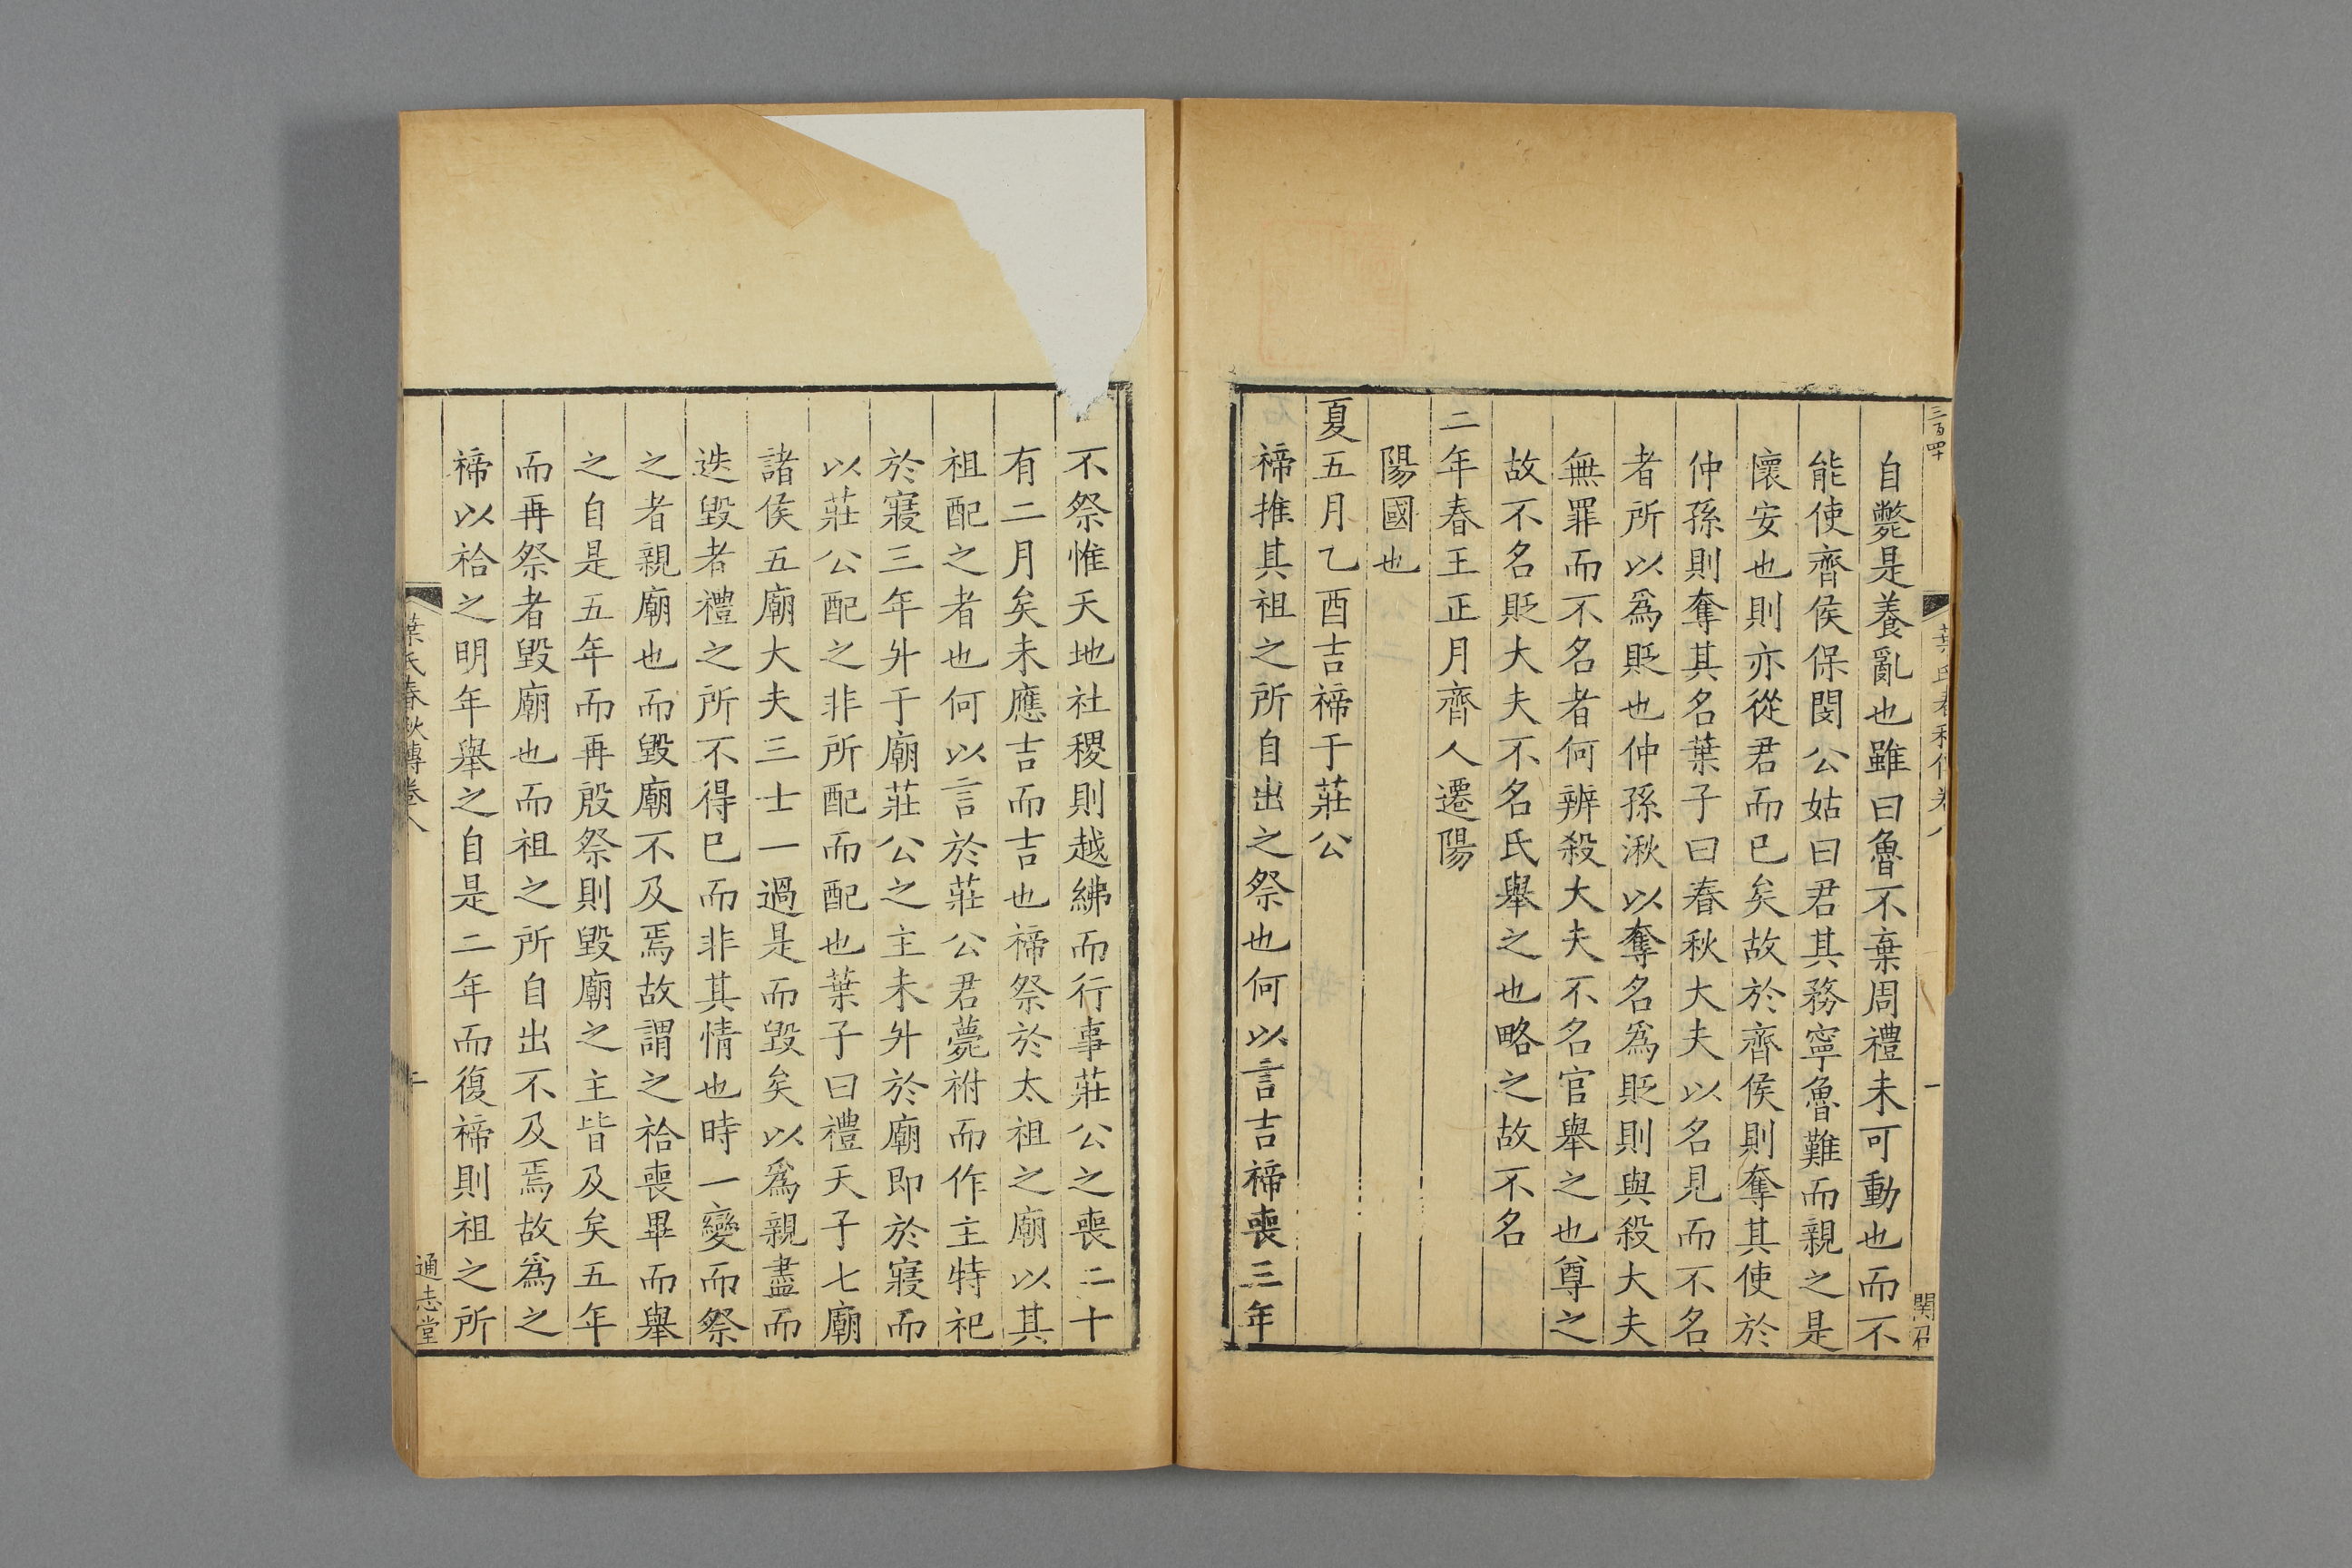 三百四十
葉氏春秋傳卷八
一
自斃是養亂也雖曰魯不棄周禮未可動也而不
能使齊侯保閔公姑曰君其務寧魯難而親之是
懷安也則亦從君而已矣故於齊侯則奪其使於
仲孫則奪其名葉子曰春秋大夫以名見而不名
者所以爲貶也仲孫湫以奪名爲貶則與殺大夫
無罪而不名者何辨殺大夫不名官舉之也尊之
故不名貶大夫不名氏舉之也略之故不名
二年春王正月齊人遷陽
陽國也
夏五月乙酉吉禘于莊公
禘推其祖之所自出之祭也何以言吉禘喪三年
不祭惟天地社稷則越紼而行事莊公之喪二十
有二月矣未應吉而吉也禘祭於太祖之廟以其
祖配之者也何以言於莊公君薨祔而作主特祀
於寢三年升于廟莊公之主未升於廟即於寢而
以莊公配之非所配而配也葉子曰禮天子七廟
諸侯五廟大夫三士一過是而毀矣以爲親盡而
迭毀者禮之所不得已而非其情也時一變而祭
之者親廟也而毀廟不及焉故謂之祫喪畢而舉
之自是五年而再殷祭則毀廟之主皆及矣五年
而再祭者毀廟也而祖之所自出不及焉故爲之
禘以祫之明年舉之自是二年而復禘則祖之所
葉氏春秋傳卷八
通志堂